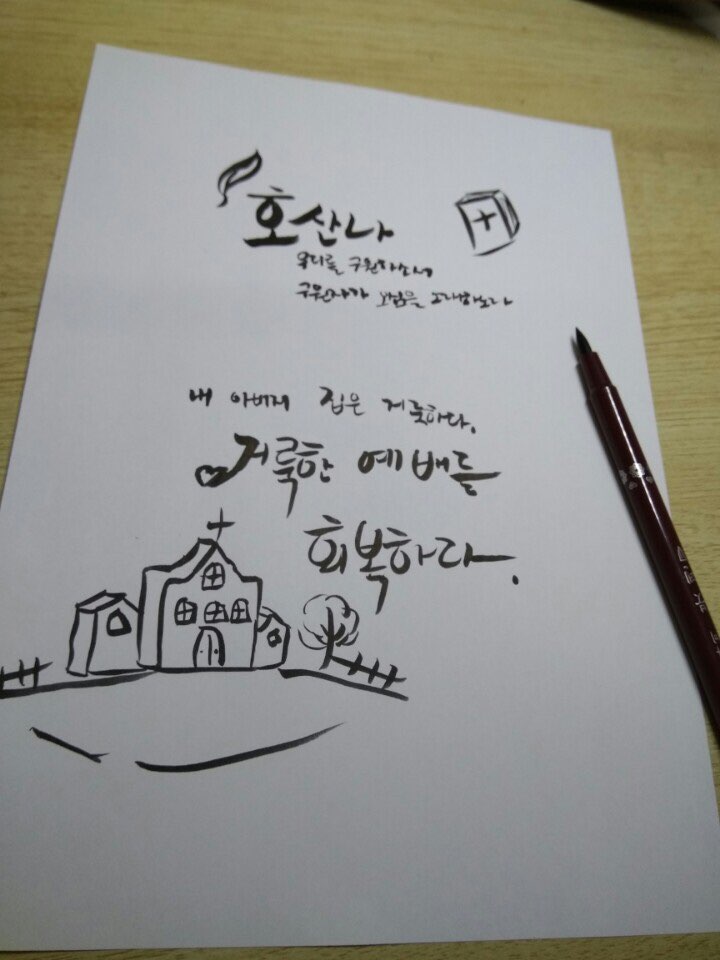 호산나
우리를 구원하소서
구원자가 오심을 고대하노라
내 아버지 집은 거룩하다.
거룩한 예배를
회복하라.